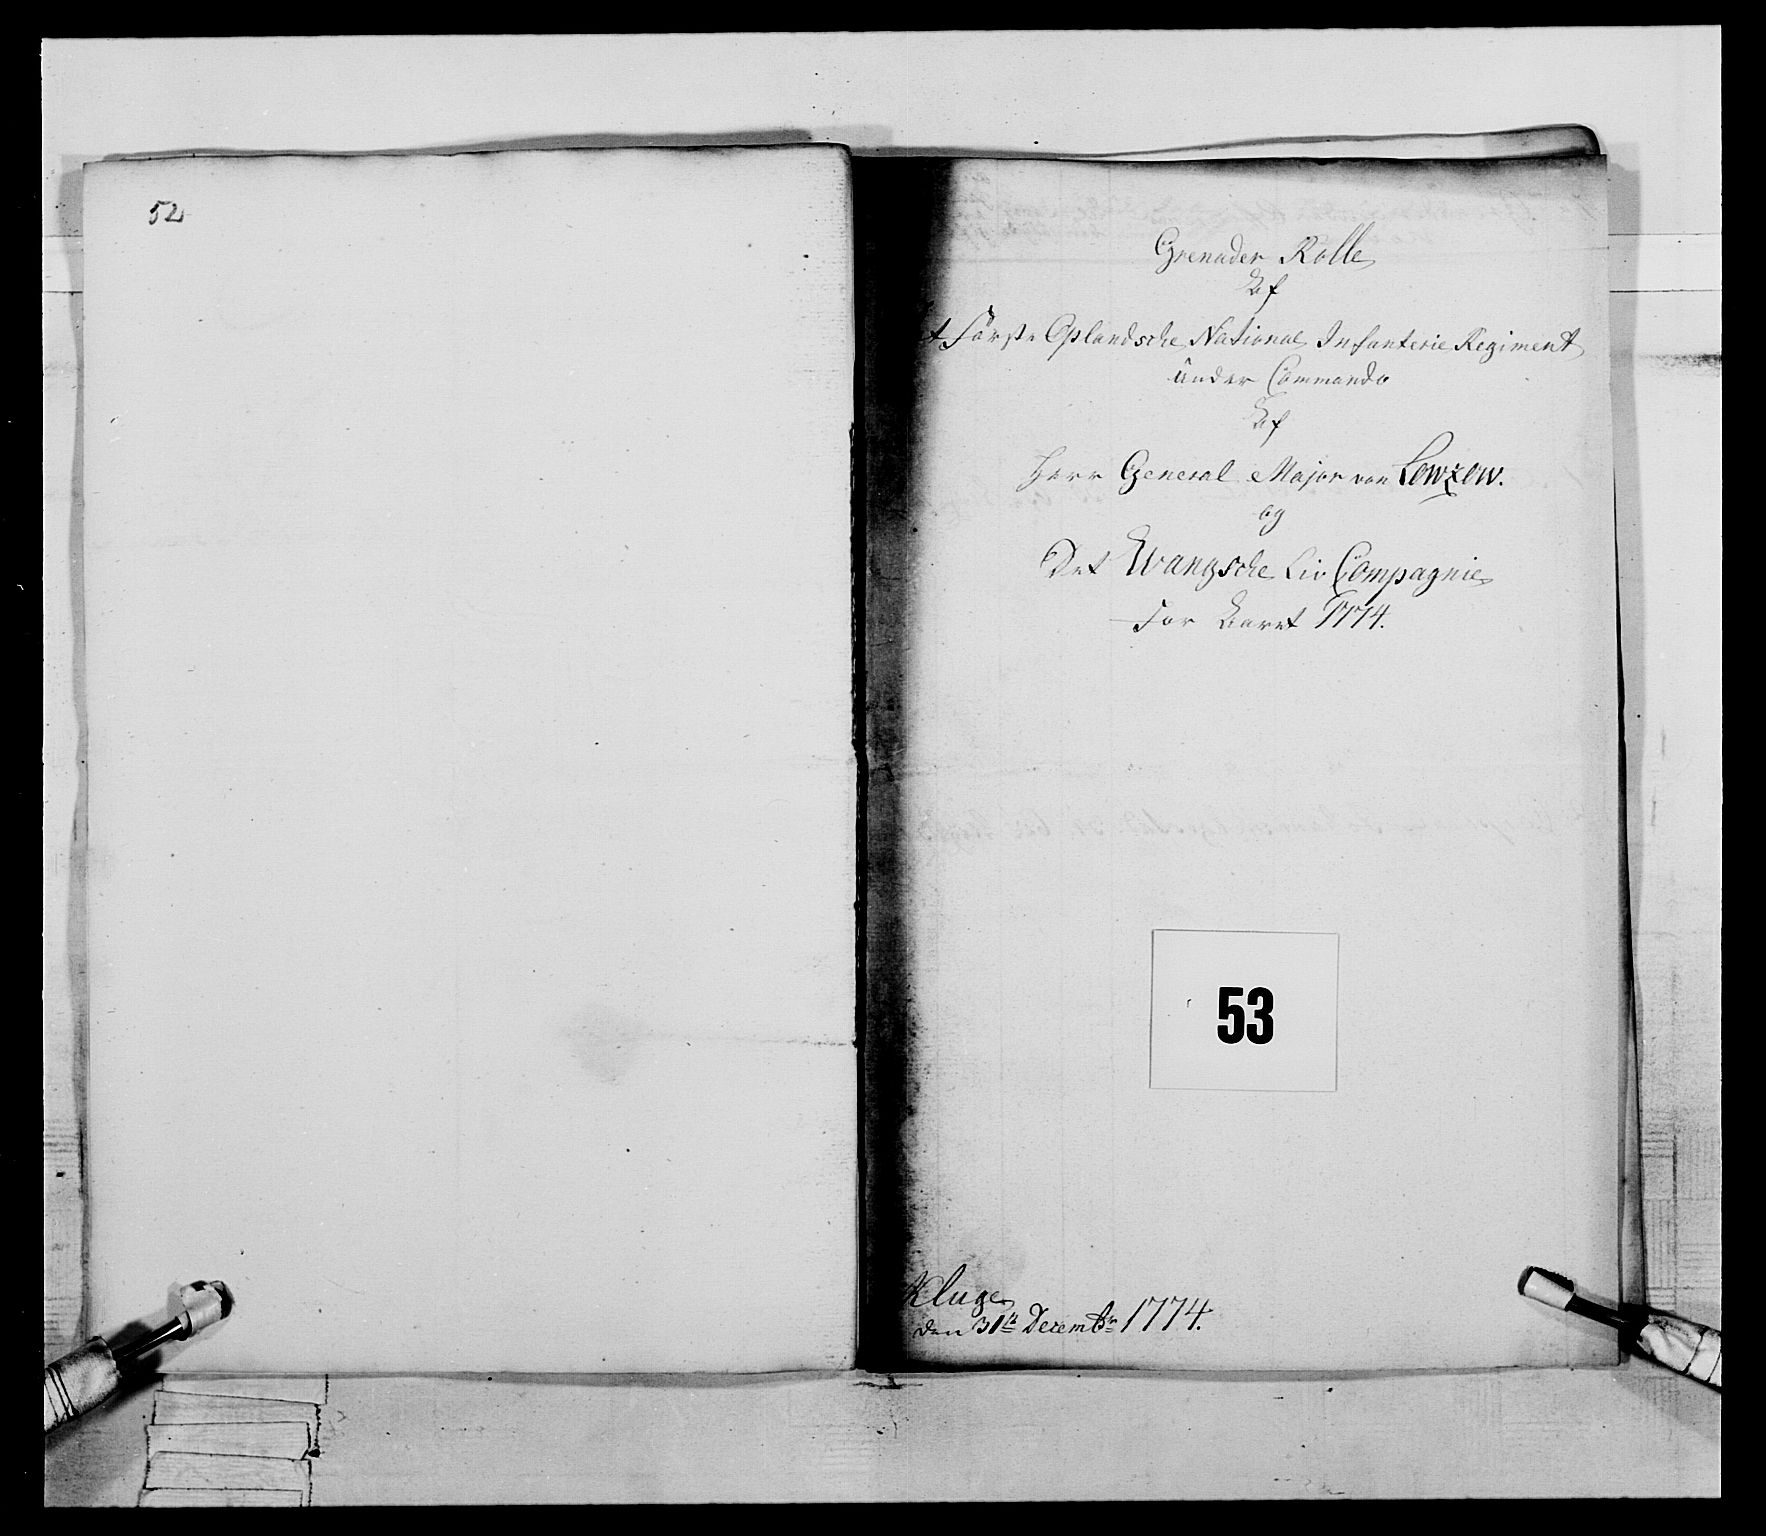 52
Grenader Rolle
Af
t Förste Oplandsche National Infanterie Regiment
under Commando
Af
Herr General Major von Lowzow.
og
Det Wangsche Liv Compagnie
For Aaret 1774.
53
Kluge
den 31te Decembr 1774.